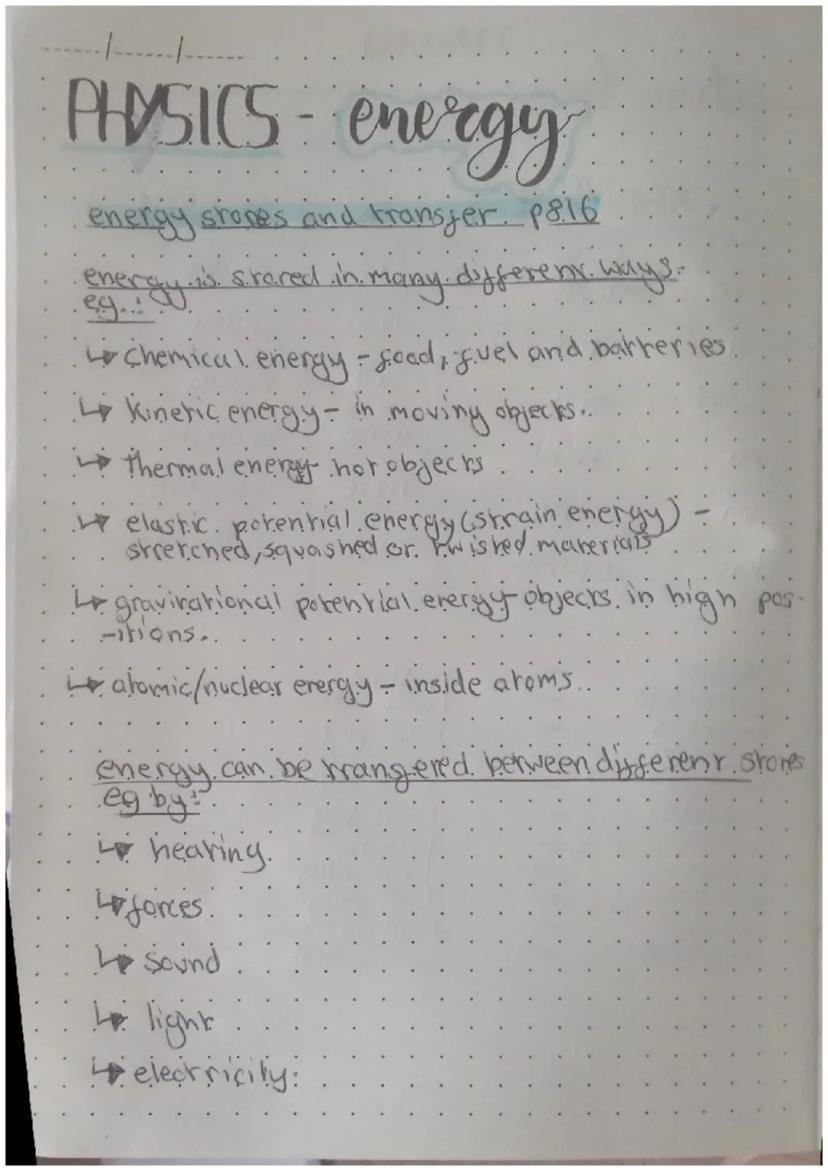 PHYSICS - energy
energy stores and transfer. p816
energy is stored in many different ways.
eg.:
↳ chemical energy - food, fuel and batteries.
↳ kinetic energy - in moving objects.
↳ thermal energy - hot objects
↳ elastic potential energy (strain energy) -
stretched, squashed or twisted materials
↳ gravitational potential energy - objects in high pos-
-itions.
↳ atomic/nuclear energy - inside atoms.
energy can be trangered between different stores
eg by:
↳ heating.
↳ forces.
↳ sound
↳ light
↳ electricity.